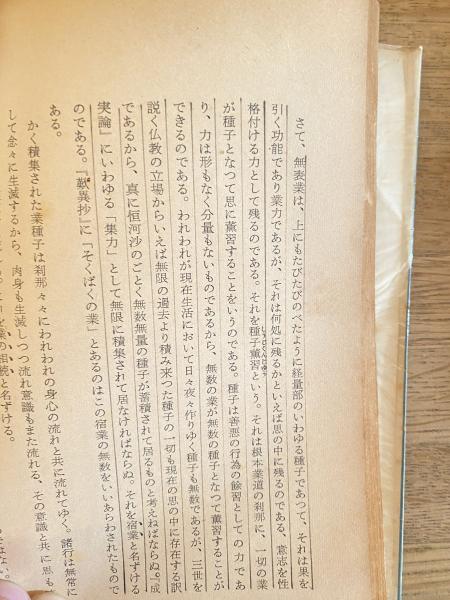 さて、無表業は、上にもたびたびのべたように経量部のいわゆる種子であつて、それは果を
引く功能であり業力であるが、それは何処に残るかといえば思の中に残るのである、意志を性
格付ける力として残るのである。それを種子薫習という。それは根本業道の刹那に、一切の業
が種子となつて思に薫習することをいうのである。種子は善悪の行為の余習としての力であ
り、力は形もなく分量もないものであるから、無数の業が無数の種子となつて薫習することが
できるのである。われわれが現在生活において日々夜々作りゆく種子も無数であるが、三世を
説く仏教の立場からいえば無限の過去より積み来つた種子の一切も現在の思の中に存在する訳
であるから、真に恒河沙のごとく無数無量の種子が蓄積されて居るものと考えねばならぬ。『成
実論』にいわゆる「集力」として無限に積集されて居なければならぬ。それを宿業と名ずける
のである。『歎異抄』に「そくばくの業」とあるのはこの宿業の無数をいいあらわされたもので
ある。
かく積集された業種子は刹那々々にわれわれの身心の流れと共に流れてゆく。諸行は無常に
して念々に生滅するから、肉身も生滅しつつ流れ意識もまた流れる、その意識と共に思も
の相続と名ずける。